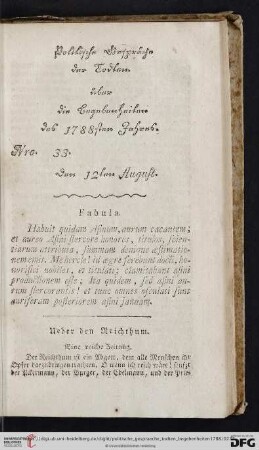 Politische Gespräche
der Todten
über
die Begebenheiten
des 1788sten Jahrs.
Nro. 33.
Den 12ten August.
Fabula.
Habuit quidam Asinum, aurum cacantem;
et auro Asini stercore honores, titulos, scien-
tiarum attributa, summum denique aestimatio-
nem emit. Me hercle! id aegre ferebant docti, ho-
norati nobiles, et titulati; clamitabant asini
productionem esse; ita quidem, sed asini au-
rum stercorantis! et tunc omnes osculati sunt
auriferam posteriorem asini januam.
Ueber den Reichthum.
Eine reiche Zeitung.
Der Reichthum ist ein Abgott, dem alle Menschen ihr
Opfer darzubringen trachten. O wenn ich reich wäre! seufzt
der Ackermann, der Burger, der Edelmann, und der Prie-
DFG